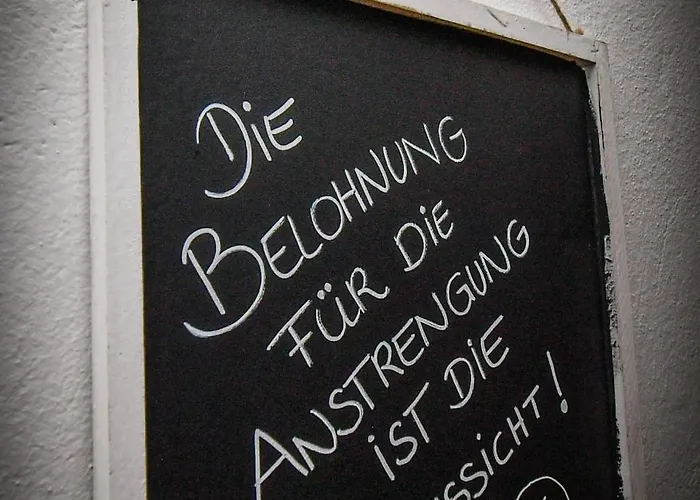 Die
BELOHNUNG
FÜR DiE
ANSTRENGUNG
iST DiE
SSICHT!